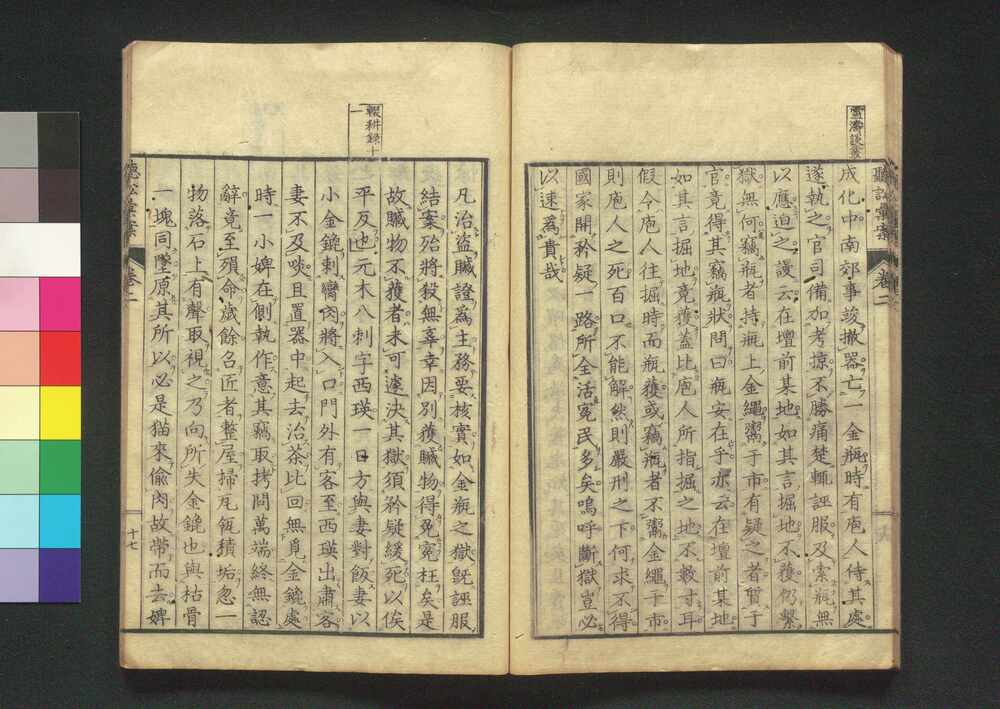 聽訟彙案 卷二
成化中南郊事竣撤器亡一金瓶時有庖人侍其處
遂執之官司備加考掠不勝痛楚輒誣服及索瓶無
以應迫之謾云在壇前某地如其言掘地不獲仍繫
獄無何竊瓶者持瓶上金繩鬻于市有疑之者質于
官竟得其竊瓶狀問曰瓶安在乎亦云在壇前某地
如其言掘地竟獲蓋比庖人所指掘之地不數寸耳
假令庖人往掘時而瓶獲或竊瓶者不鬻金繩于市
則庖人之死百口不能解然則嚴刑之下何求不得
國家開矜疑一路所全活冤民多矣嗚呼斷獄豈必
以速為貴哉
輟耕録十
一
凡治盜贓證為主務要核實如金瓶之獄既誣服
結案殆將殺無辜幸因別獲贓物得免冤枉矣是
故贓物不獲者未可遽決其獄須矜疑緩死以俟
平反也元木八剌字西瑛一日方與妻對飯妻以
小金鎞刺臠肉將入口門外有客至西瑛出肅客
妻不及啖且置器中起去治茶比回無覓金鎞處
時一小婢在側執作意其竊取拷問萬端終無認
辭竟至殞命歲餘名匠者整屋掃瓦瓴積垢忽一
物落石上有聲取視之乃向所失金鎞也與枯骨
一塊同墜原其所以必是猫來偸肉故帶而去婢
聽訟彙案 卷二 十七